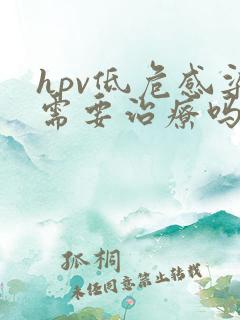 hpv低危感染
需要治疗吗
孤桐
未经同意禁止转载